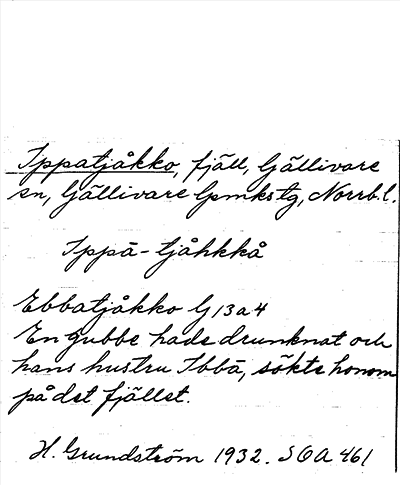 Ippatjåkko, fjäll, Gällivare
sn, Gällivare lpmkstg, Norrb. l.
Ippā-tjåhkkå
Ebbatjåkko G 13 a 4
En gubbe hade drunknat och
hans hustru Ibbā, sökte honom
på det fjället.
H. Grundström 1932. SOA 461